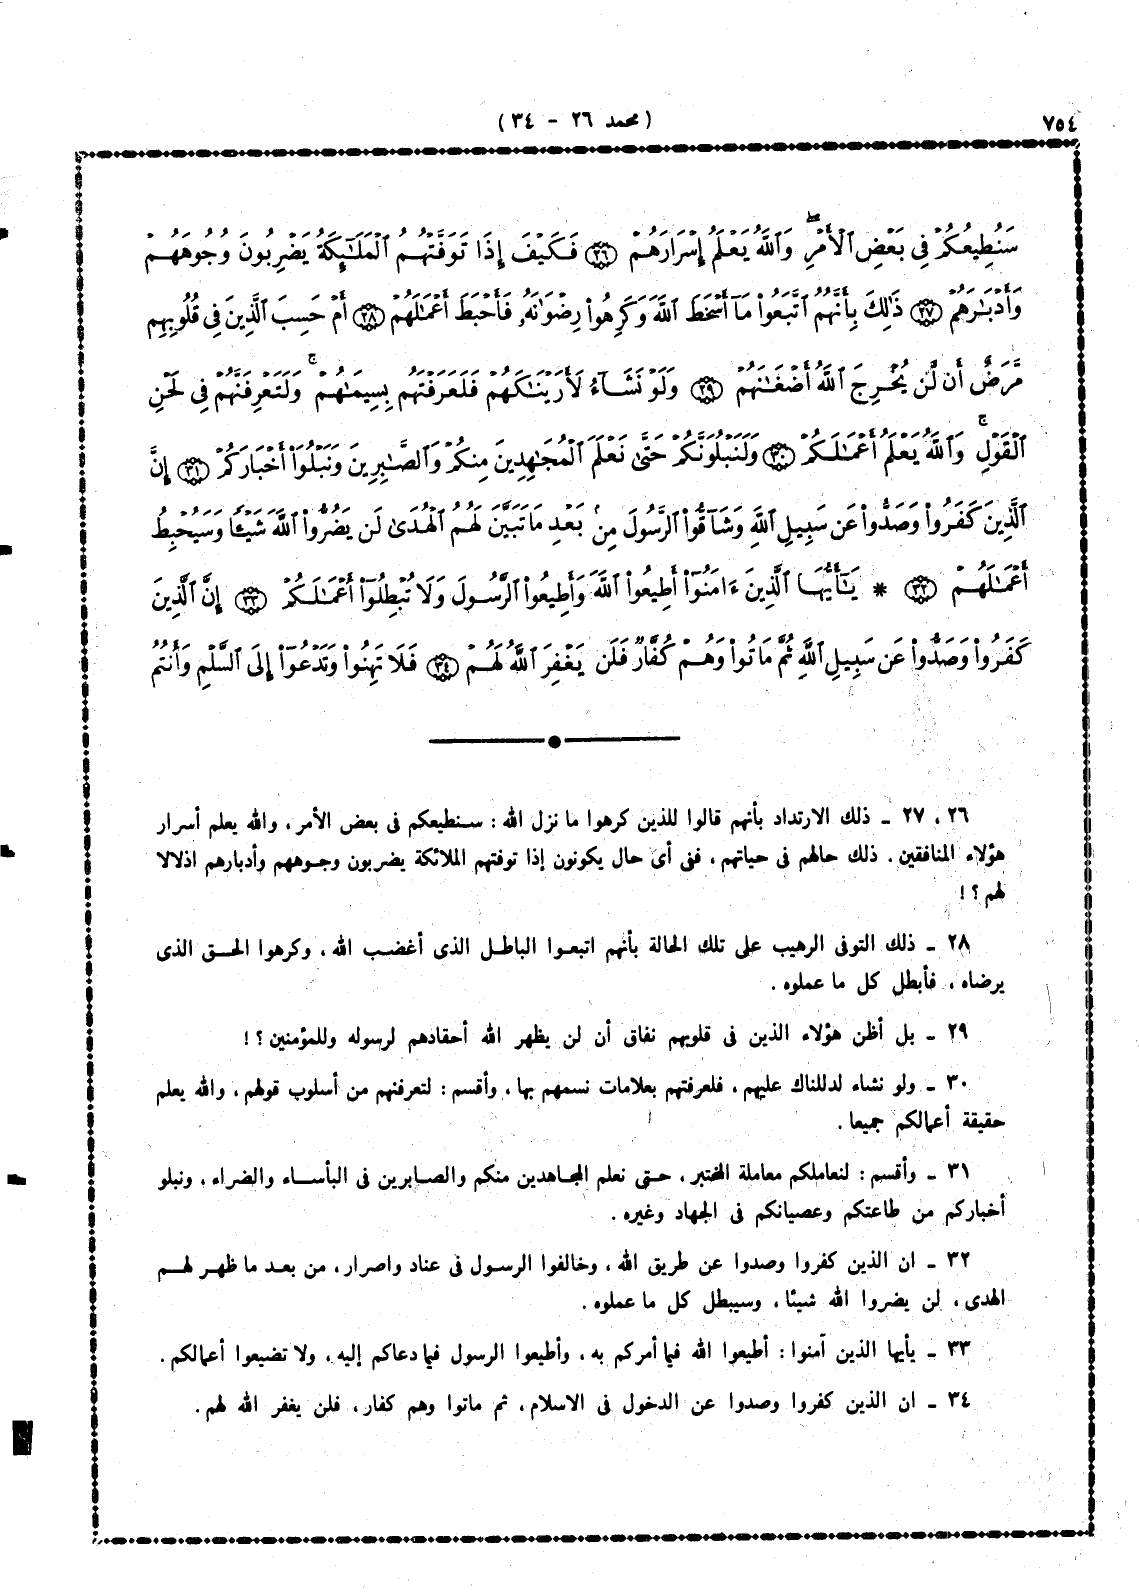 ٧٥٤
(محمد ٢٦ - ٣٤)
سَنُطِيعُكُمْ فِى بَعْضِ ٱلْأَمْرِ ۖ وَٱللَّهُ يَعْلَمُ إِسْرَارَهُمْ ﴿٢٦﴾ فَكَيْفَ إِذَا تَوَفَّتْهُمُ ٱلْمَلَٰٓئِكَةُ يَضْرِبُونَ وُجُوهَهُمْ
وَأَدْبَٰرَهُمْ ﴿٢٧﴾ ذَٰلِكَ بِأَنَّهُمُ ٱتَّبَعُوا۟ مَآ أَسْخَطَ ٱللَّهَ وَكَرِهُوا۟ رِضْوَٰنَهُۥ فَأَحْبَطَ أَعْمَٰلَهُمْ ﴿٢٨﴾ أَمْ حَسِبَ ٱلَّذِينَ فِى قُلُوبِهِم
مَّرَضٌ أَن لَّن يُخْرِجَ ٱللَّهُ أَضْغَٰنَهُمْ ﴿٢٩﴾ وَلَوْ نَشَآءُ لَأَرَيْنَٰكَهُمْ فَلَعَرَفْتَهُم بِسِيمَٰهُمْ ۚ وَلَتَعْرِفَنَّهُمْ فِى لَحْنِ
ٱلْقَوْلِ ۚ وَٱللَّهُ يَعْلَمُ أَعْمَٰلَكُمْ ﴿٣٠﴾ وَلَنَبْلُوَنَّكُمْ حَتَّىٰ نَعْلَمَ ٱلْمُجَٰهِدِينَ مِنكُمْ وَٱلصَّٰبِرِينَ وَنَبْلُوَا۟ أَخْبَارَكُمْ ﴿٣١﴾ إِنَّ
ٱلَّذِينَ كَفَرُوا۟ وَصَدُّوا۟ عَن سَبِيلِ ٱللَّهِ وَشَآقُّوا۟ ٱلرَّسُولَ مِنۢ بَعْدِ مَا تَبَيَّنَ لَهُمُ ٱلْهُدَىٰ لَن يَضُرُّوا۟ ٱللَّهَ شَيْـًٔا وَسَيُحْبِطُ
أَعْمَٰلَهُمْ ﴿٣٢﴾ * يَٰٓأَيُّهَا ٱلَّذِينَ ءَامَنُوٓا۟ أَطِيعُوا۟ ٱللَّهَ وَأَطِيعُوا۟ ٱلرَّسُولَ وَلَا تُبْطِلُوٓا۟ أَعْمَٰلَكُمْ ﴿٣٣﴾ إِنَّ ٱلَّذِينَ
كَفَرُوا۟ وَصَدُّوا۟ عَن سَبِيلِ ٱللَّهِ ثُمَّ مَاتُوا۟ وَهُمْ كُفَّارٌ فَلَن يَغْفِرَ ٱللَّهُ لَهُمْ ﴿٣٤﴾ فَلَا تَهِنُوا۟ وَتَدْعُوٓا۟ إِلَى ٱلسَّلْمِ وَأَنتُمُ
٢٦ ، ٢٧ ـ ذلك الارتداد بأنهم قالوا للذين كرهوا ما نزل الله : سنطيعكم فى بعض الأمر ، والله يعلم أسرار
هؤلاء المنافقين . ذلك حالهم فى حياتهم ، فنى أى حال يكونون إذا توفتهم الملائكة يضربون وجوههم وأدبارهم اذلالا
لهم ؟ !
٢٨ ـ ذلك التوفى الرهيب على تلك الحالة بأنهم اتبعوا الباطل الذى أغضب الله ، وكرهوا الحق الذى
يرضاه ، فأبطل كل ما عملوه .
٢٩ ـ بل أظن هؤلاء الذين فى قلوبهم نفاق أن لن يظهر الله أحقادهم لرسوله وللمؤمنين ؟ !
٣٠ ـ ولو نشاء لدللناك عليهم ، فلعرفتهم بعلامات نسمهم بها ، وأقسم : لتعرفنهم من أسلوب قولهم ، والله يعلم
حقيقة أعمالكم جميعا .
٣١ ـ وأقسم : لنعاملكم معاملة المختبر ، حتى نعلم المجاهدين منكم والصابرين فى البأساء والضراء ، ونبلو
أخباركم من طاعتكم وعصيانكم فى الجهاد وغيره .
٣٢ ـ ان الذين كفروا وصدوا عن طريق الله ، وخالفوا الرسول فى عناد واصرار ، من بعد ما ظهر لهم
الهدى ، لن يضروا الله شيئا ، وسيبطل كل ما عملوه .
٣٣ ـ يأيها الذين آمنوا : أطيعوا الله فيما أمركم به ، وأطيعوا الرسول فيما دعاكم إليه ، ولا تضيعوا أعمالكم .
٣٤ ـ ان الذين كفروا وصدوا عن الدخول فى الاسلام ، ثم ماتوا وهم كفار ، فلن يغفر الله لهم .